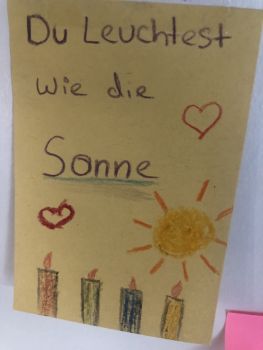 Du Leuchtest
wie die
Sonne